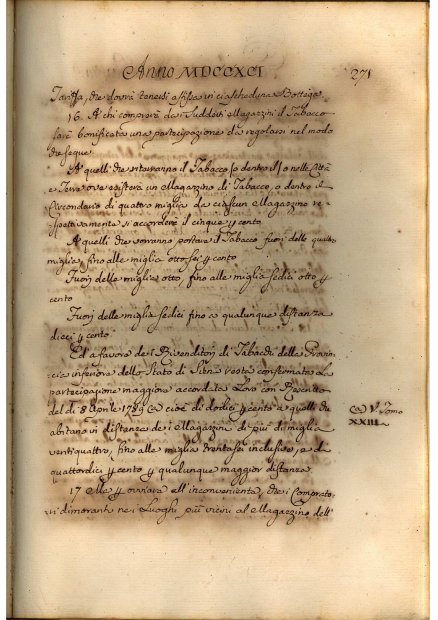 Anno MDCCXCI
271
Tariffa, che dovrà tenersi affissa in ciascheduna Bottega.
16. A chi comprerà dai Suddetti Magazzini il Tabacco
sarà bonificata una partecipazione da regolarsi nel modo
che segue.
A quelli che ritireranno il Tabacco o dentro o nelle Città
e Terre ove esisterà un Magazzino di Tabacco, o dentro il
Circondario di quattro miglia da ciascun Magazzino re-
spettivamente si accorderà il cinque p cento
A quelli che vorranno portare il Tabacco fuori delle quattro
miglia, fino alle miglia otto sei p cento
Fuori delle miglia otto, fino alle miglia sedici otto p
cento
Fuori delle miglia sedici fino a qualunque distanza
dieci p cento
Ed a favore dei Rivenditori di Tabacchi della Provin-
cia inferiore dello Stato di Siena resta confermata la
partecipazione maggiore accordata Loro con Rescritto
del dì 8 Aprile 1789 cioè di dodici p cento a quelli che
abitano in distanza dei Magazzini di più di miglia
ventiquattro, fino alle miglia trentasei inclusive, e di
quattordici p cento p qualunque maggior distanza.
V. Tomo
XXIII
17 Ma p ovviare all'inconveniente, che i Comprato-
ri dimoranti nei Luoghi più vicini al Magazzino dell'